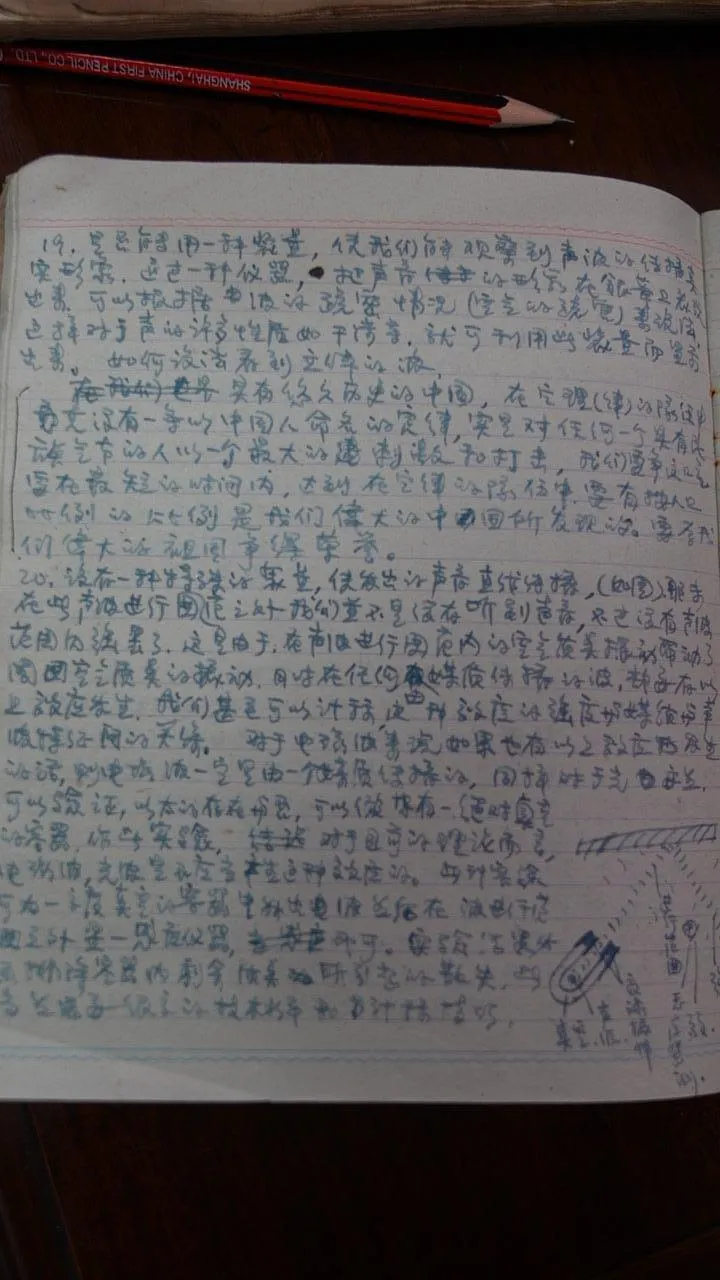 SHANGHAI, CHINA FIRST PENCIL CO., LTD.
19. 是否能用一种装置，使我们能观察到声波的传播真
实形象。通过一种仪器，把声音的形象在银幕上表现
出来。可以根据声波的疏密情况（空气的疏密）表现
这样对于声的许多性质如干涉等，就可利用此装置而显示
出来。如何设法看到立体的波。
具有悠久历史的中国，在定理（律）的队伍中
竟没有一条以中国人命名的定律，实是对任何一个具有民
族气节的人以一个最大的刺激和打击，我们要争这口气
要在最短的时间内，达到在定律的队伍中，要有按人口
比例的比例是我们伟大的中国所发现的。要为我
们伟大的祖国争得荣誉。
20. 设有一种特殊的装置，使发出的声音直线传播，（如图）那末
在此声波进行范围之外我们并不是没有听到声音，只是没有声波
范围内强罢了。这是由于，在声波进行范围内的空气质点振动带动了
周围空气质点的振动。同时在任何由媒质传播的波，都要有以
上效应发生。我们甚至可以计算这种效应的强度与媒质与声
波振幅间的关系。对于电磁波来说如果也有以上效应发生
的话，则电磁波一定是由一个媒质传播的，同样对于光也是，
可以验证，以太的存在与否，可以做有一绝对真空
的容器，作此实验，对于目前的理论而言，
电磁波，光波是不应当产生这种效应的。此种容器
可为一高度真空的容器中射出电波并然后在波进行范
围之外置一感应仪器，即可。实验
排除容器内剩余质点所引起的散失，此
当然要很高的技术水平和计算技巧，
真空
进行范围